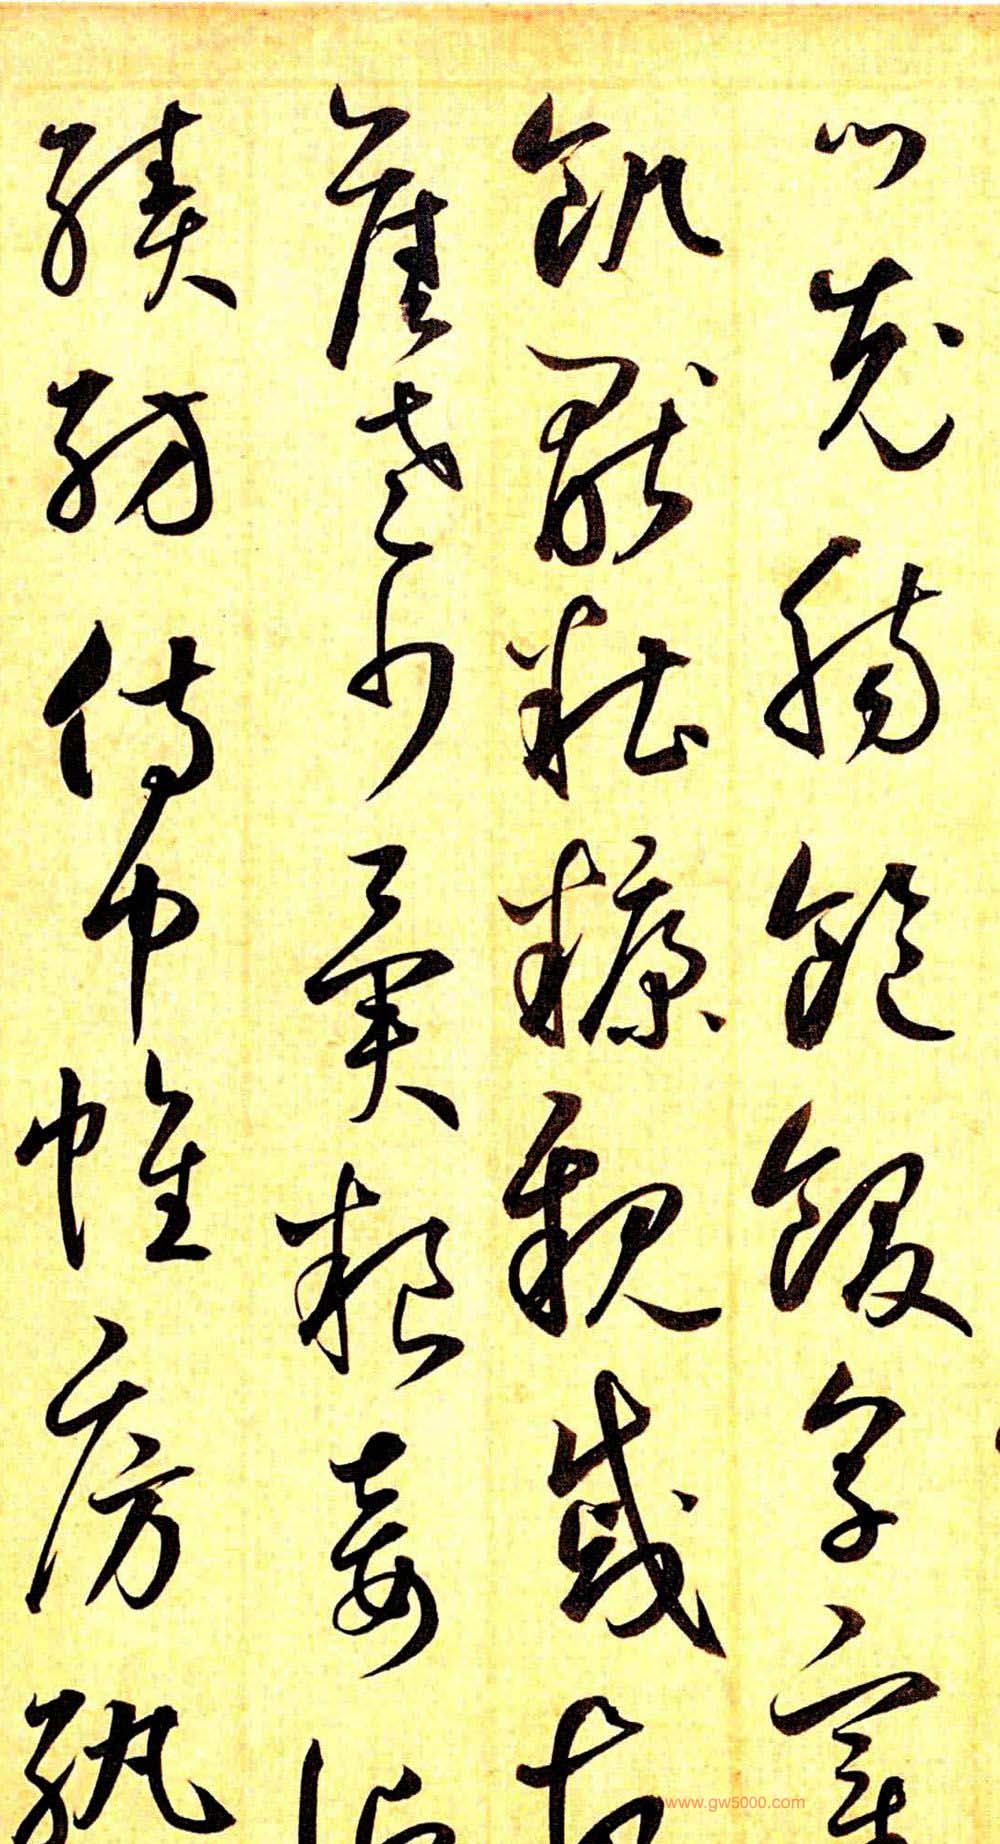 口充腸飽飫烹宰
飢厭糟糠親戚故
舊老少異糧妾御
績紡侍巾帷房紈
www.gw5000.com